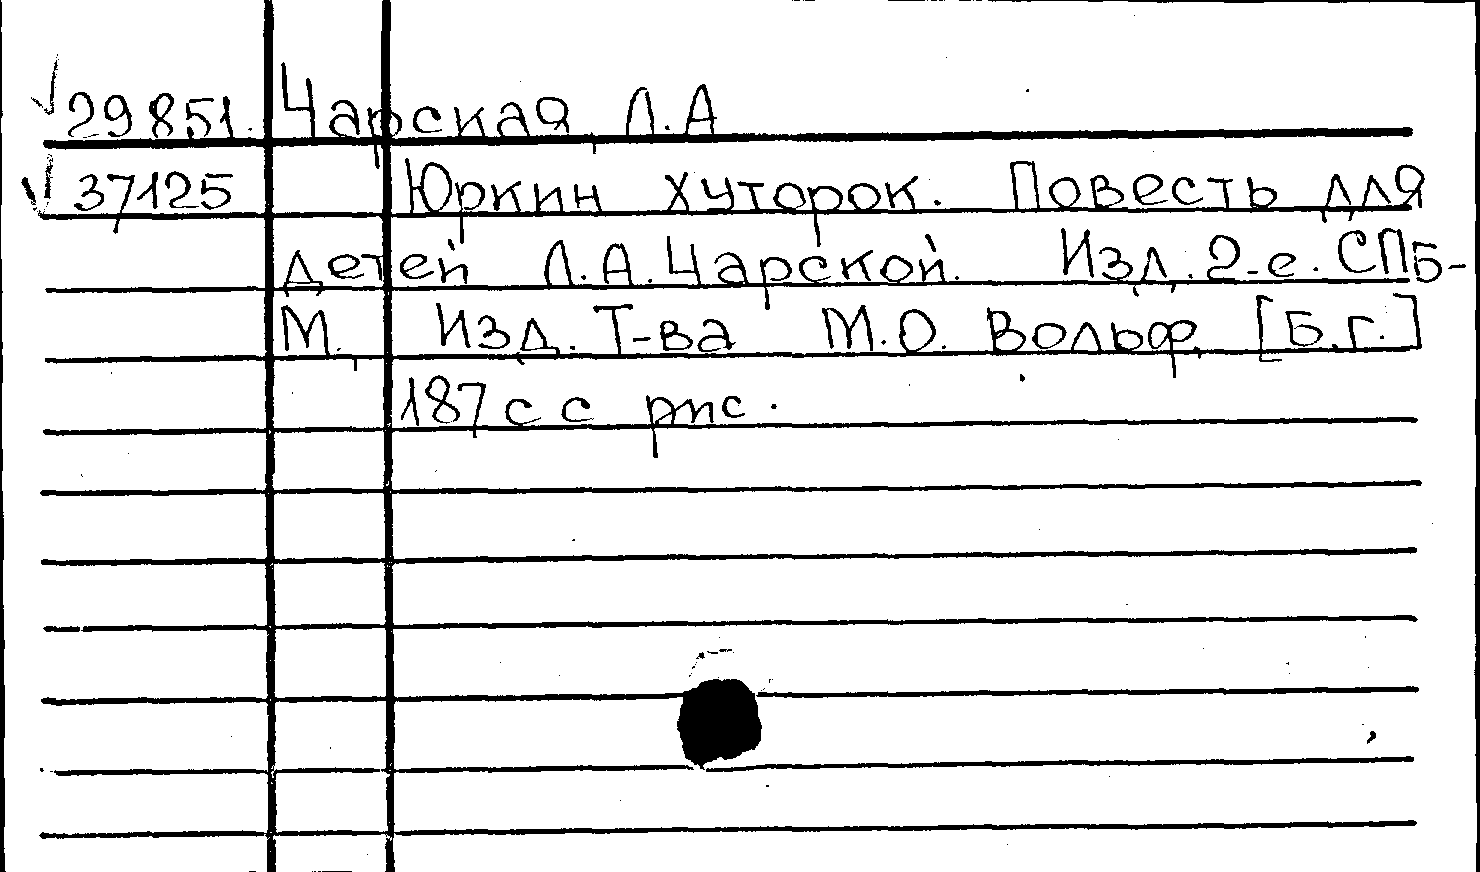 29851. Чарская, Л.А
37125 Юркин хуторок. Повесть для
детей Л.А.Чарской. Изд. 2-е. СПб-
М., Изд. Т-ва М.О. Вольф, [Б.г.]
187 с с рис.